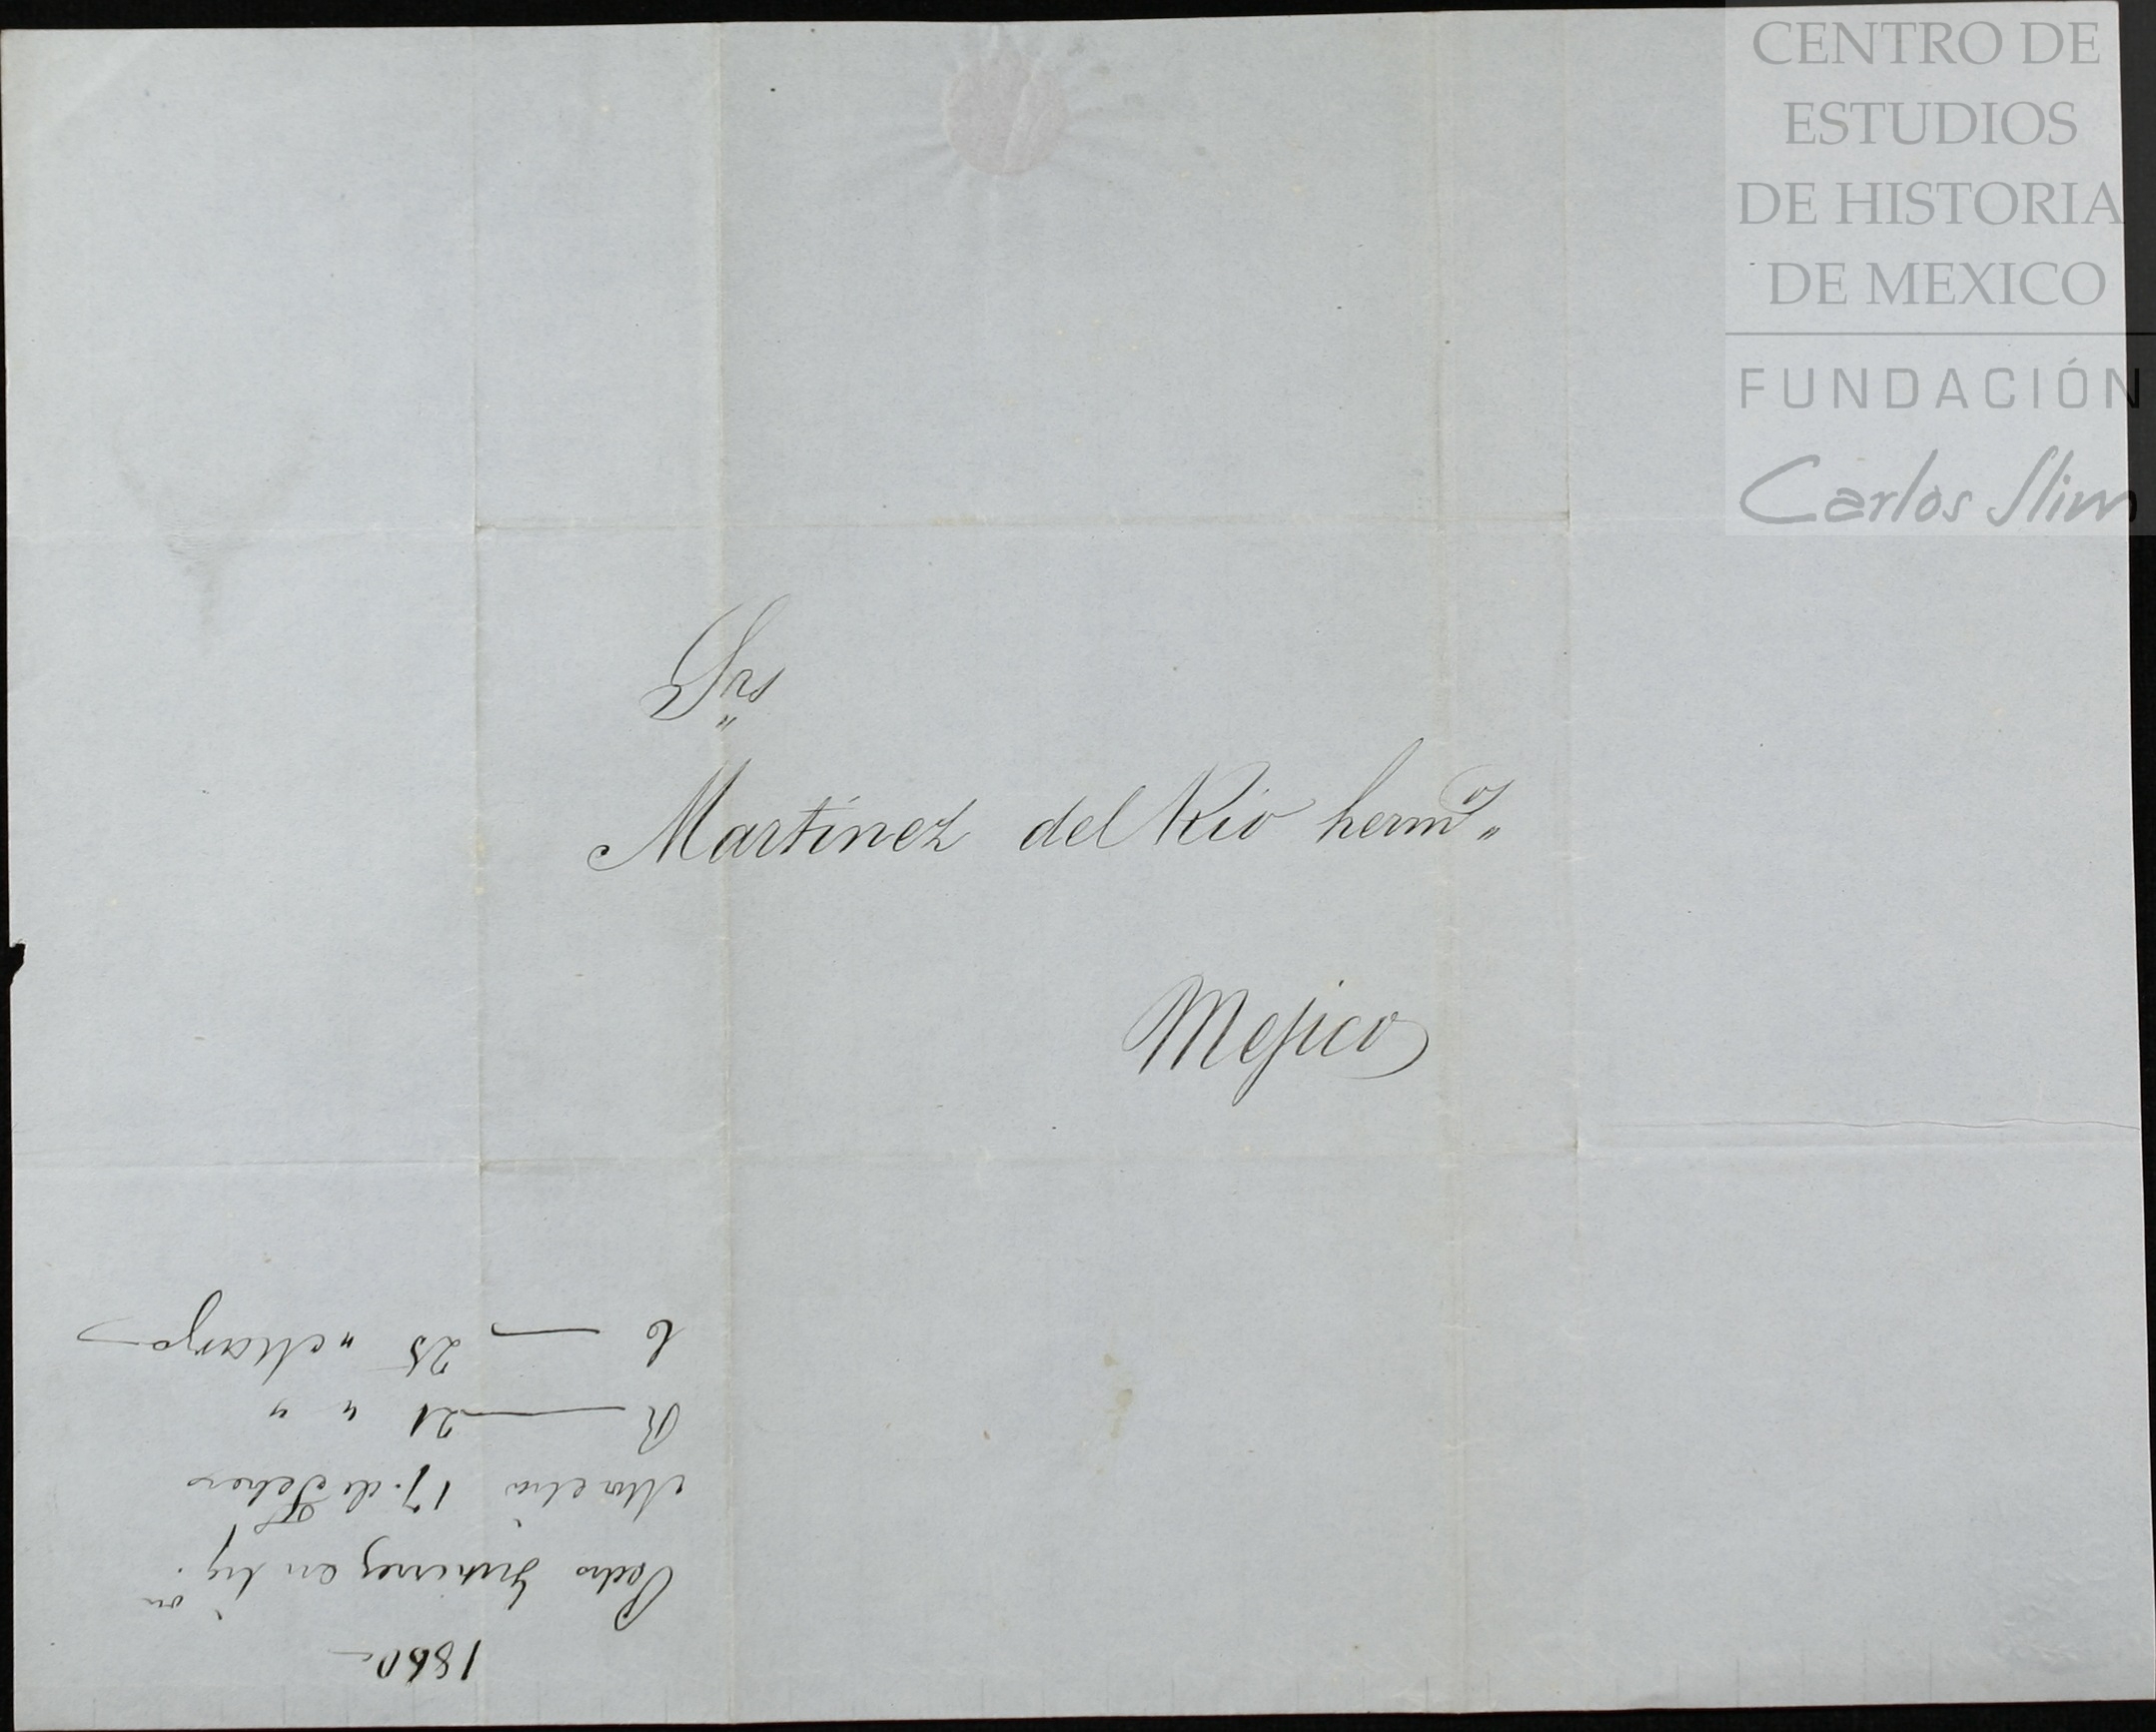 CENTRO DE
ESTUDIOS
DE HISTORIA
DE MEXICO
FUNDACIÓN
Carlos Slim
Srs
Martinez del Rio herm.os
Mejico
1860
Pedro Gutierrez en liq.on
Morelia 17. de Febrero
R 21 " "
C 25 " Marzo